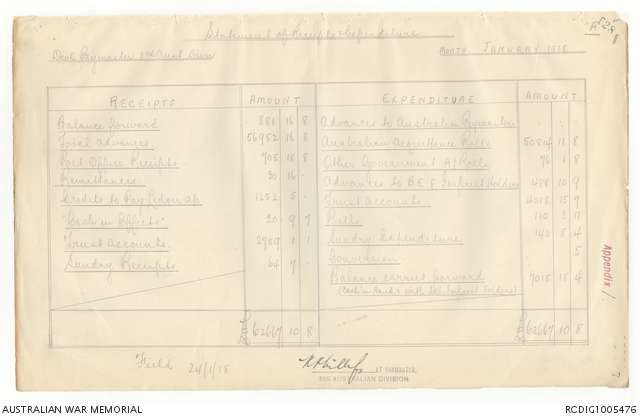 Statement of Receipts & Expenditure
Paymaster 2nd Aust Divn
MONTH. JANUARY 1918
RECEIPTS AMOUNT EXPENDITURE AMOUNT
Balance forward 881 16 8
Advances to Australian Paymasters
Local advances 56952 16 8
Australian Acquittance Rolls 50814 11 8
Post Office Receipts 705 18 8
Other Government A/ Rolls 76 1 8
Remittances 30 16 -
Advances to B.E.F. Imprest Holders 488 10 9
Credits to Pay Ledger a/c 1252 5 -
Trust Accounts 4018 15 7
"Cash in Effects" 20 9 7
Bills 110 2 11
Trust Accounts 1 1
Sundry Expenditure 142 8 4
Sundry Receipts 64 7 -
Conversion 5
Balance carried forward 7015 18 4
(Cash in hand & with Imprest holders)
62667 10 8
62667 10 8
Appendix 1.
Field 24/1/18
LT PAYMASTER,
AUSTRALIAN DIVISION
AUSTRALIAN WAR MEMORIAL
RCDIG1005476